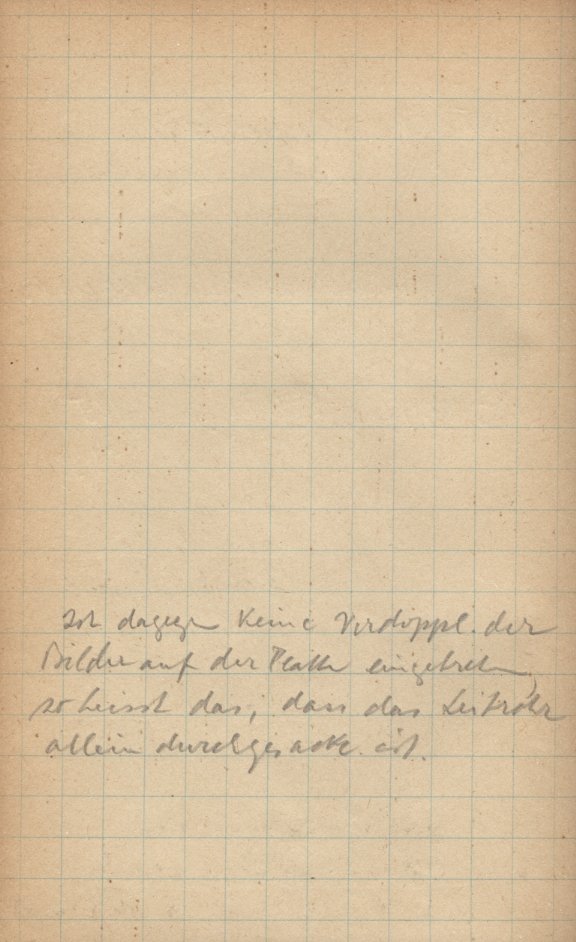 Ist dagegen keine Verdoppl. der
Bilder auf der Platte eingetreten,
so heisst das, dass das Leitrohr
allein durchgesackt ist.